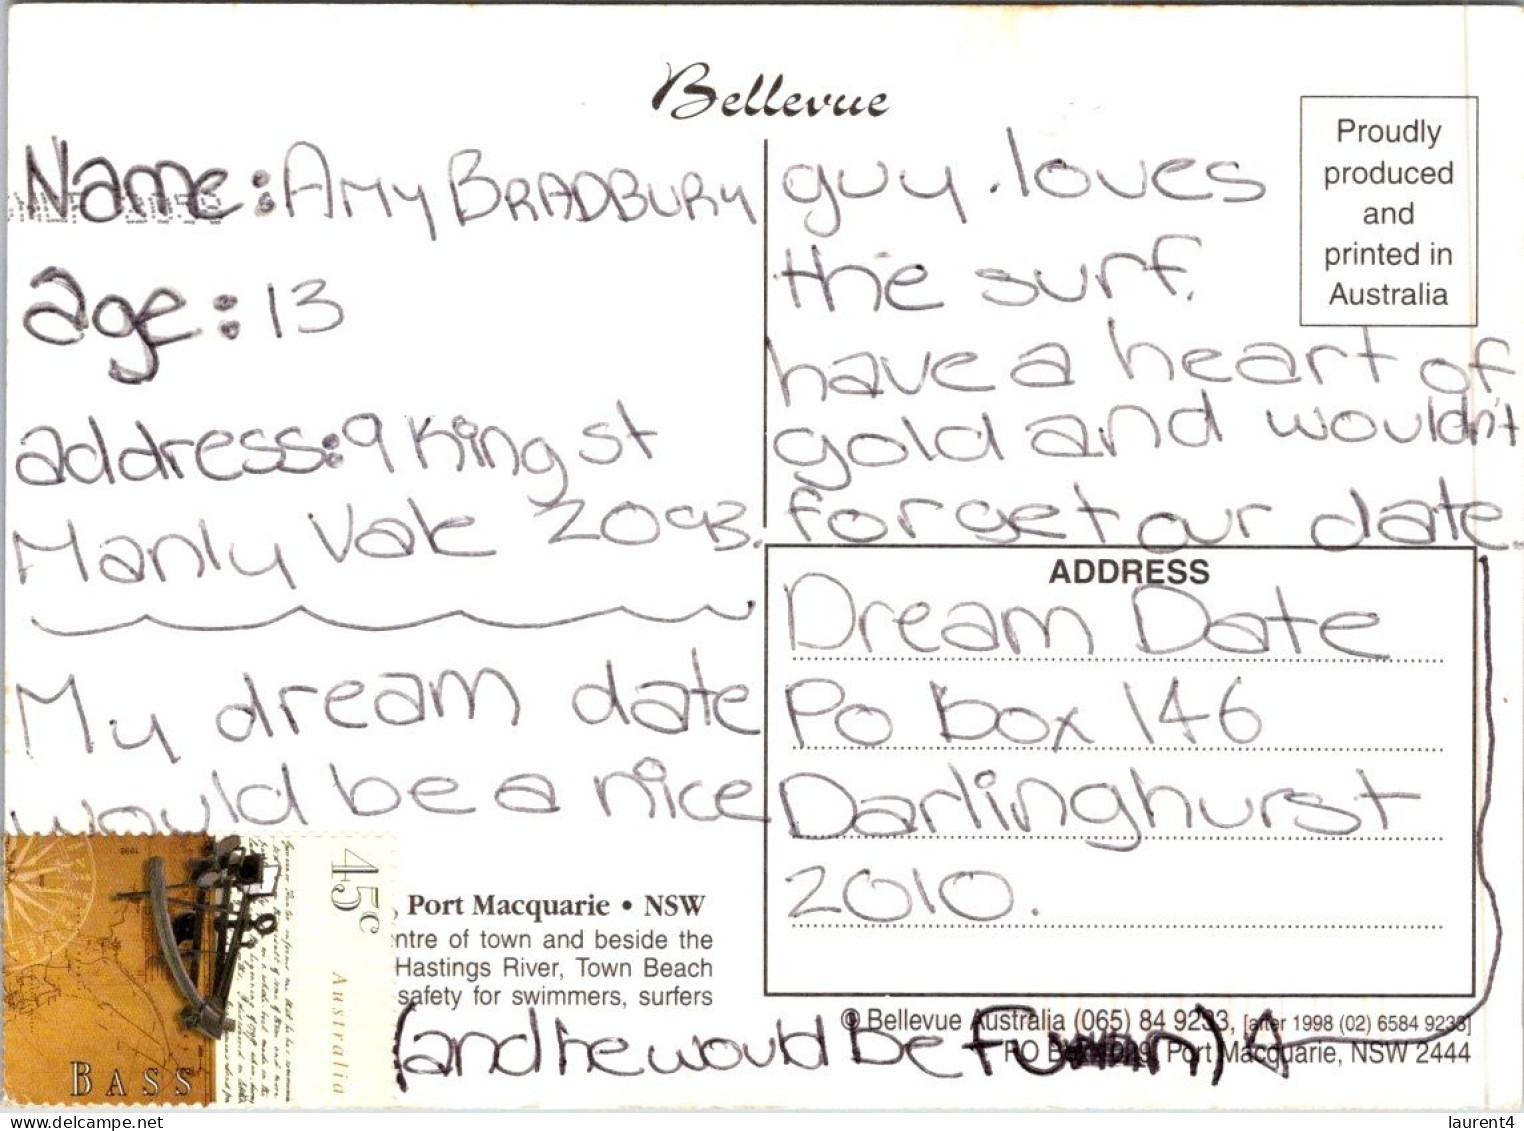 Bellevue
Name: Amy Bradbury
age: 13
address: 9 King st
Manly Vale 2093.
My dream date
would be a nice
guy. loves
the surf.
have a heart of
gold and wouldn't
forget our date.
Proudly
produced
and
printed in
Australia
ADDRESS
Dream Date
Po box 146
Darlinghurst
2010.
45c
Australia
BASS
Port Macquarie • NSW
ntre of town and beside the
Hastings River, Town Beach
safety for swimmers, surfers
© Bellevue Australia (065) 84 9233, [after 1998 (02) 6584 9233]
Port Macquarie, NSW 2444
(and he would be
laurent4
https://www.delcampe.net